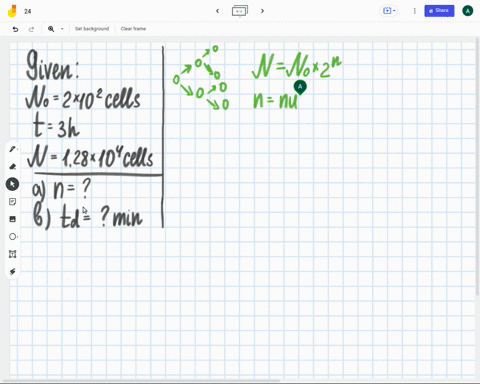 24
Share
A
Set background
Clear frame
Given:
N₀ = 2×10² cells
t = 3h
N = 1,28×10⁴ cells
a) n = ?
b) td = ? min
N = N₀ × 2ⁿ
n = nu
A